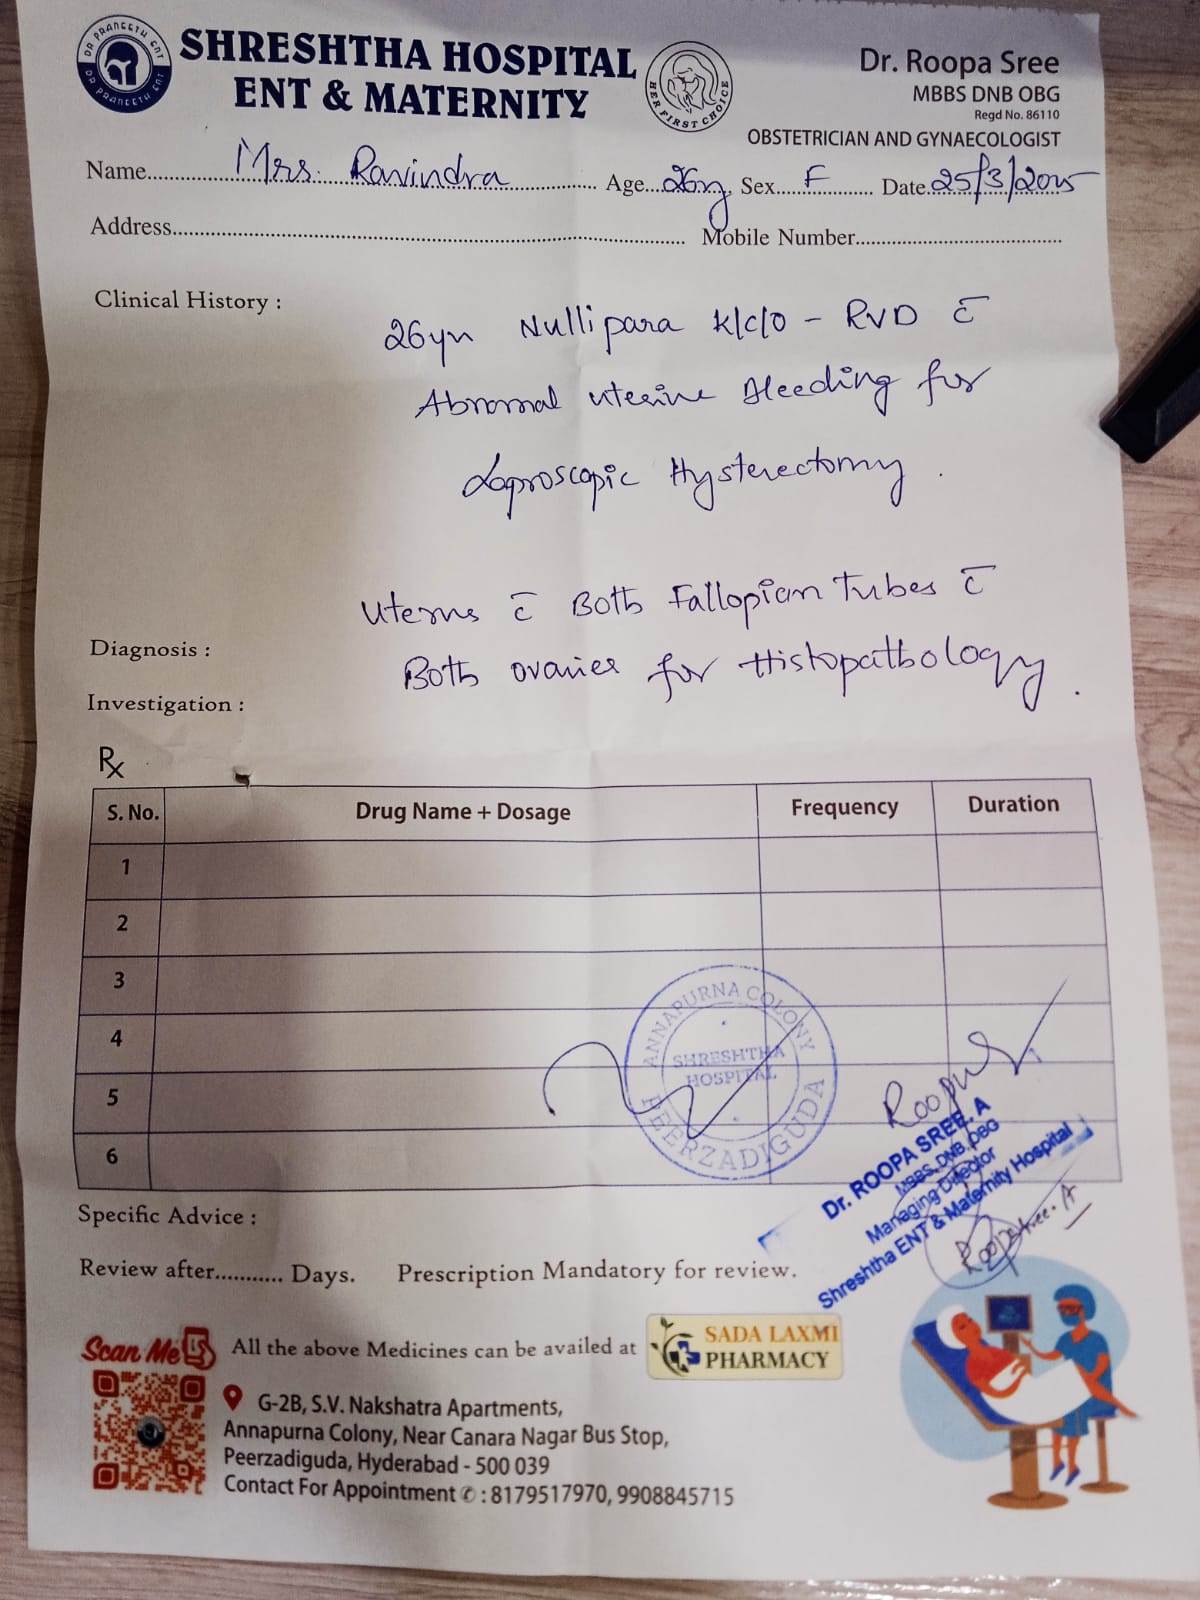 DR PRANEETH ENT
DR PRANEETH ENT
SHRESHTHA HOSPITAL
ENT & MATERNITY
HER FIRST CHOICE
Dr. Roopa Sree
MBBS DNB OBG
Regd No. 86110
OBSTETRICIAN AND GYNAECOLOGIST
Name... Mrs. Ravindra ... Age... 26y, Sex... F ... Date. 25/3/2025
Address... Mobile Number...
Clinical History :
26yr Nullipara K/c/o - RVD c̄
Abnormal uterine Bleeding for
Laproscopic Hysterectomy.
Uterus c̄ Both Fallopian Tubes c̄
Diagnosis :
Both ovaries for Histopathology.
Investigation :
Rx
S. No. Drug Name + Dosage Frequency Duration
1
2
3
4
5
6
ANNAPURNA COLONY
SHRESHTHA
HOSPITAL
PEERZADIGUDA
Dr. ROOPA SREE. A
MBBS, DNB, OBG
Managing Director
Shreshtha ENT & Maternity Hospital
Roopasree. A
Specific Advice :
Review after........... Days. Prescription Mandatory for review.
Scan Me
All the above Medicines can be availed at
SADA LAXMI
PHARMACY
G-2B, S.V. Nakshatra Apartments,
Annapurna Colony, Near Canara Nagar Bus Stop,
Peerzadiguda, Hyderabad - 500 039
Contact For Appointment ✆ : 8179517970, 9908845715